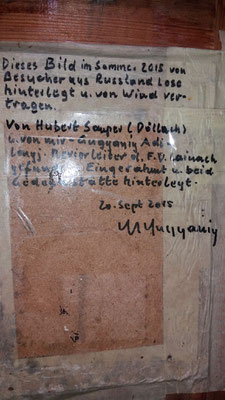 Dieses Bild im Somme. 2015 von
Besucher aus Russland Lose
hinterlegt u. von Wind ver-
tragen.
Von Hubert Sauper (Döllach)
u. von mir
Revierleiter d. F.V. Lainach
Eingerahmt u. beid
hinterlegt.
20. Sept 2015